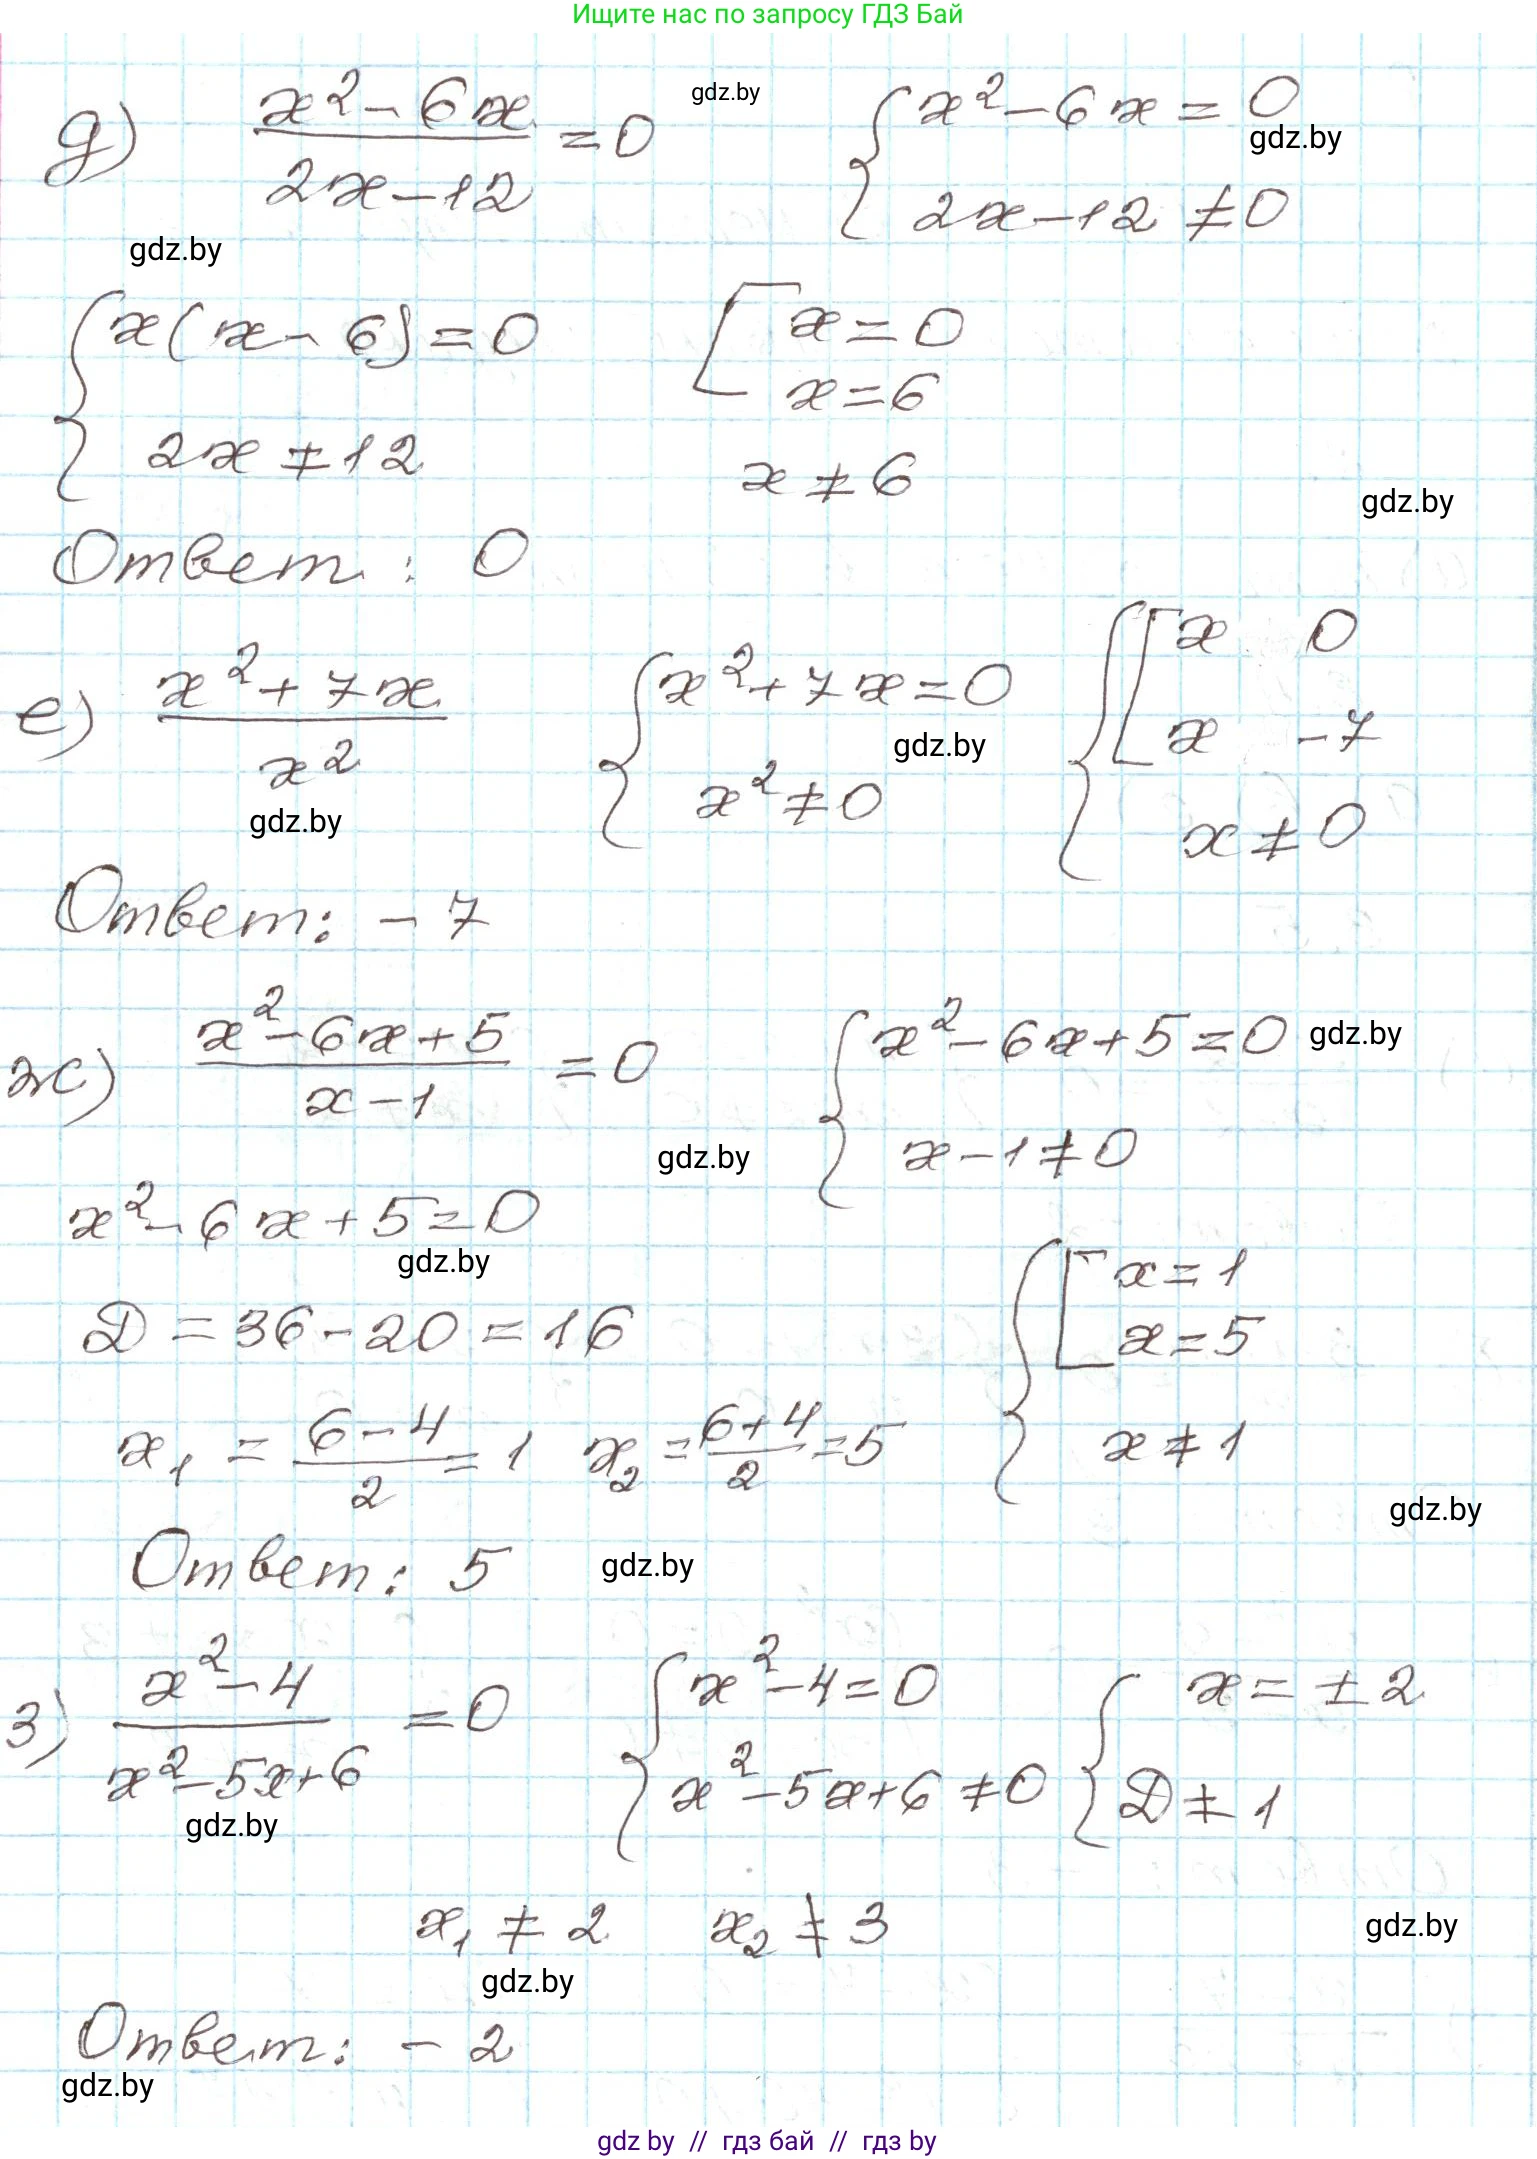 Ищите нас по запросу ГДЗ Бай
д) x² - 6x / 2x - 12 = 0 gdz.by { x² - 6x = 0
gdz.by
2x - 12 ≠ 0
gdz.by
{ x(x - 6) = 0 [ x = 0
x = 6
2x ≠ 12 x ≠ 6
gdz.by
Ответ: 0
е) x² + 7x / x² { x² + 7x = 0 { [ x 0
gdz.by x -7
x² ≠ 0 x ≠ 0
gdz.by
Ответ: -7
ж) x² - 6x + 5 / x - 1 = 0 { x² - 6x + 5 = 0 gdz.by
gdz.by x - 1 ≠ 0
x² - 6x + 5 = 0
gdz.by { [ x = 1
Д = 36 - 20 = 16 x = 5
x₁ = 6 - 4 / 2 = 1 x₂ = 6 + 4 / 2 = 5 x ≠ 1
gdz.by
Ответ: 5 gdz.by
з) x² - 4 / x² - 5x + 6 = 0 { x² - 4 = 0 { x = ± 2
x² - 5x + 6 ≠ 0 Д ≠ 1
gdz.by
x₁ ≠ 2 x₂ ≠ 3 gdz.by
gdz.by
Ответ: -2
gdz.by
gdz by // гдз бай // гдз by